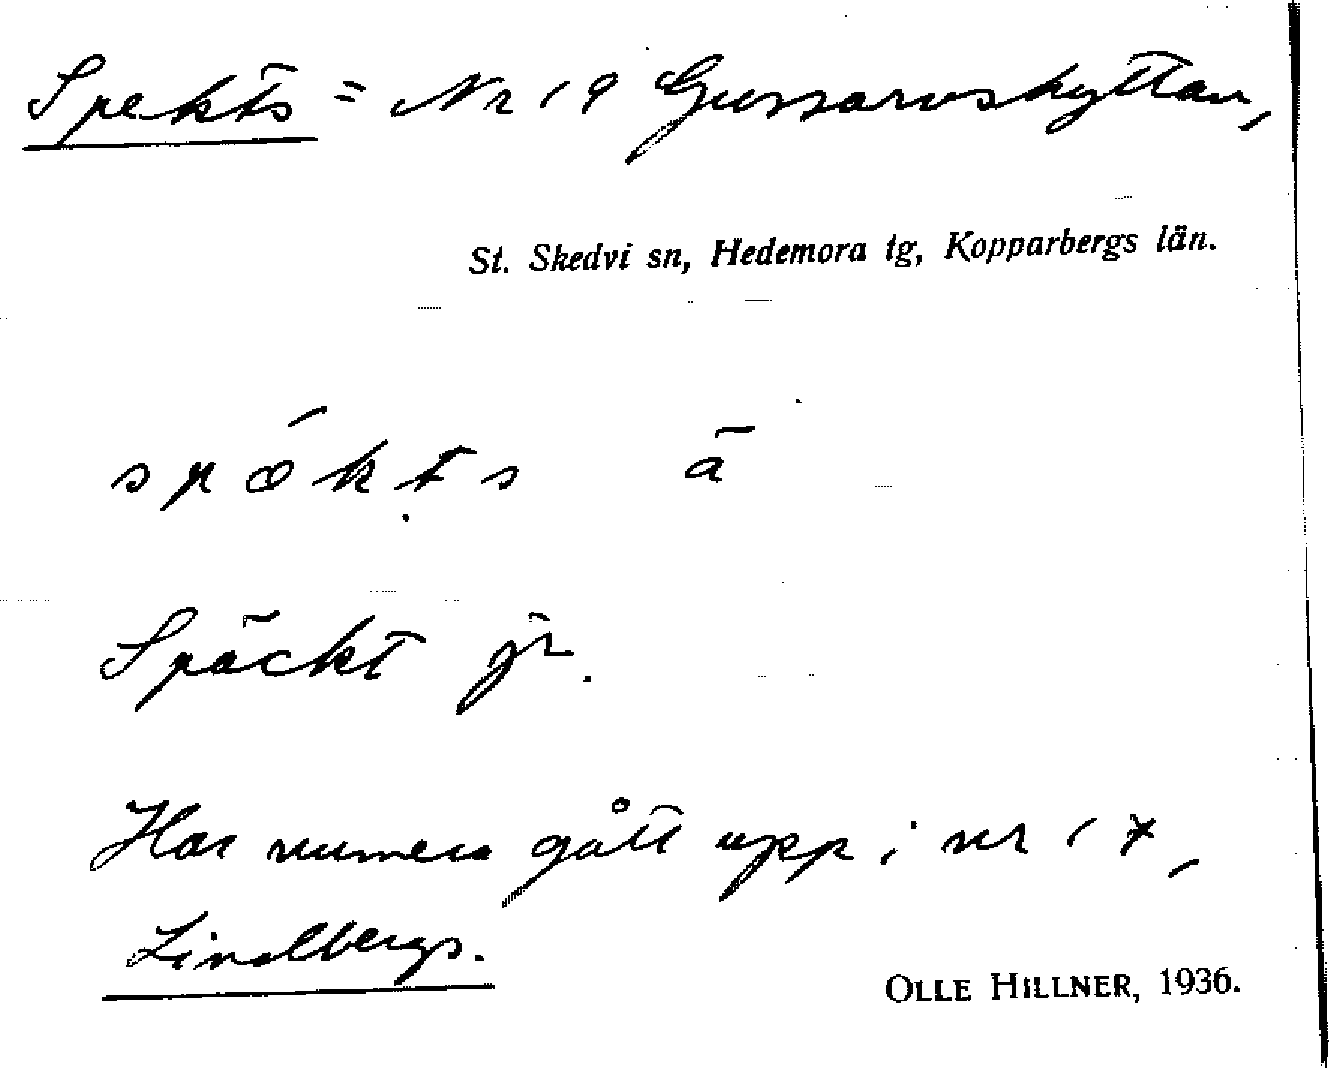 Spekts = Nr 19 Gussarvshyttan,
St. Skedvi sn, Hedemora tg, Kopparbergs län.
spókṭs ā
Späckt jr.
Har numera gått upp i nr 17,
Lindbergs.
OLLE HILLNER, 1936.